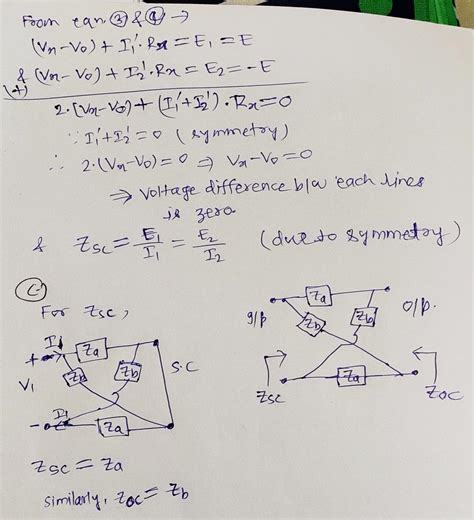 From eqn ③ & ④ →
(Vn-V0) + I1'.Rx = E1 = E
& (Vn-V0) + I2'.Rx = E2 = -E
(+)
2.(Vn-V0) + (I1'+I2').Rx = 0
∵ I1'+I2' = 0 (symmetry)
∴ 2.(Vn-V0) = 0 ⇒ Vn-V0 = 0
⇒ Voltage difference b/w each lines
is zero
& Zsc = E1/I1 = E2/I2 (due to symmetry)
C
For Zsc,
I1
Za
+
Zb
Zb
S.C
V1
-
I1
Za
Za
g/p
Zb
Zb
o/p.
Za
Zsc
Zoc
Zsc = Za
similarly, Zoc = Zb